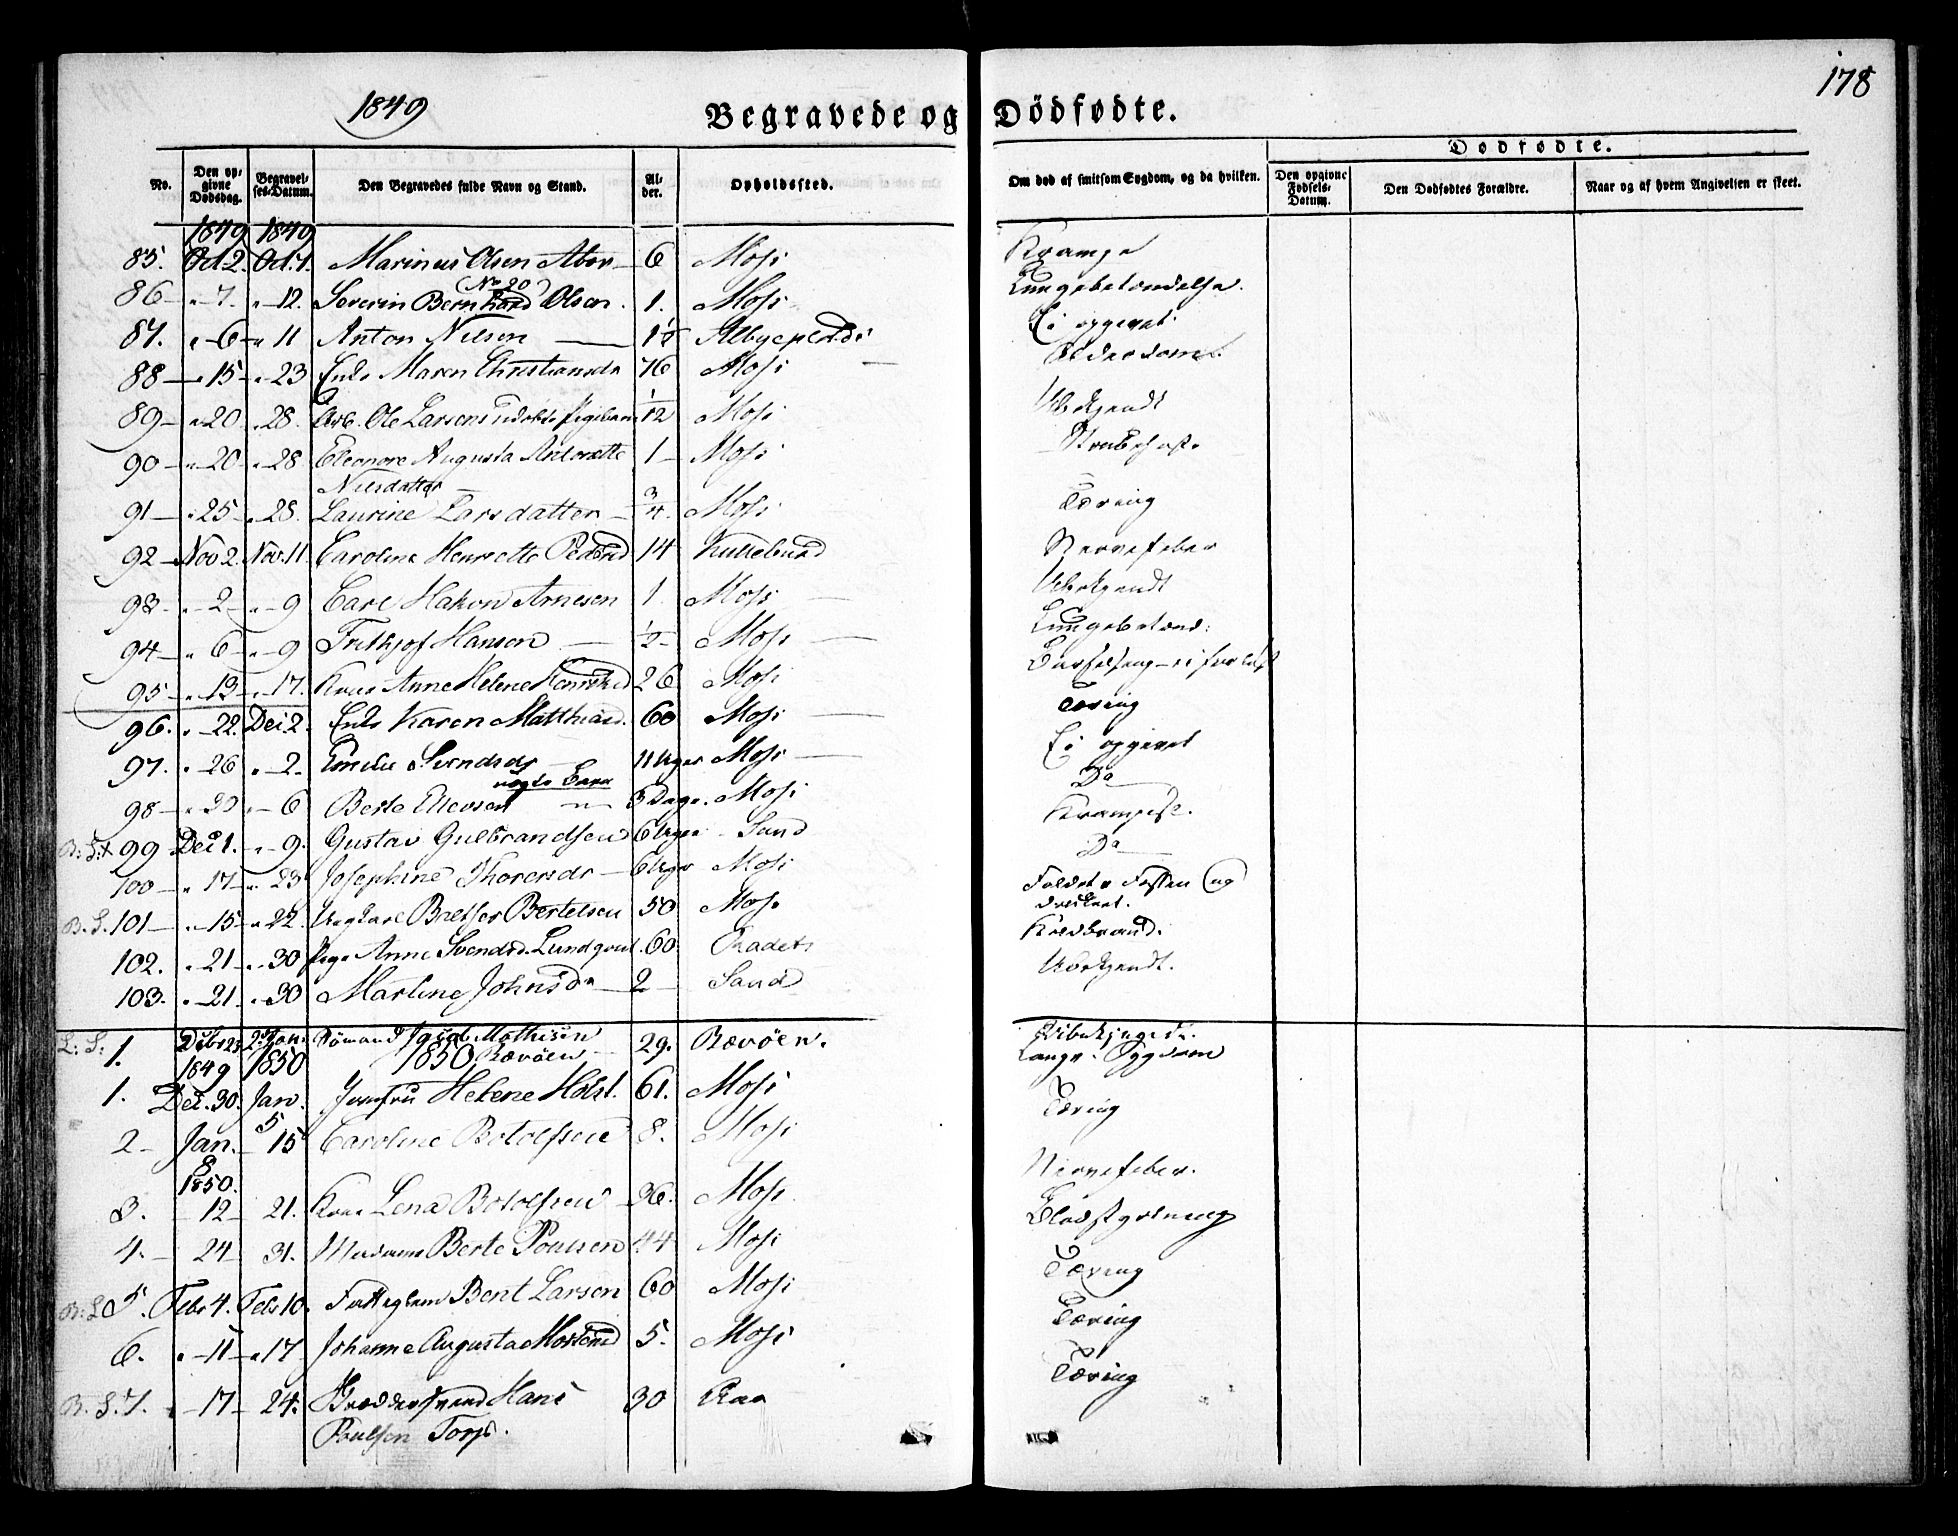 178
1849
Begravede og Dödfødte.
No. Den opgivne Dødsdag. Begravelses-Datum. Den Begravedes fulde Navn og Stand. Alder. Opholdssted. Om død af smitsom Sygdom, og da hvilken. Dødfødte. Den opgivne Fødsels-Datum. Den Dødfødtes Forældre. Naar og af hvem Angivelsen er skeet.
1849 1849
85. Oct. 2. Oct. 7. Marinus Olsen 6 Moss Krampe
86 " 7. " 12. Severin Bernhard Olsen. 1. Moss Lungebetændelse.
(No 20)
87. " 6 " 11 Anton Nilsen 1½ Ei opgivet
88 " 15 " 23 Enke Maren Christiansdr 76 Moss Alderdom.
89 " 20 " 28. Arb. Ole Larsens 1/12 Moss Ubekjendt
90 " 20 " 28 Eleonore Augusta Antonette 1 Moss Strubehoste
Nilsdatter
91 " 25 " 28. Laurine Larsdatter 3/4. Moss Tæring
92 Nov 2. Nov. 11 Caroline Henriette Pedersd 14 Kullebund Nervefeber
93 " 2 " 9 Carl Hakon Arnesen 1. Moss Ubekjendt
94 " 6 " 9 Frithjof Hansen ½ Moss Lungebetænd:
95 " 13 " 17. Kone Anne Helene 26 Moss Barselseng
96. " 22. Dec 2. Enke Karen Matthiasd. 60 Moss Tæring
97. " 26 " 2. Emilie Svendsdr 11 Uger Moss Ei opgivet
ægte Barn
98 " 30 " 6 Berte Ellevsen 3 Dage. Moss Do
B: S: 99 Dec 1. " 9. Gustav Gulbrandsen 6 Uger Sand Krampe
100 " 17 " 23 Josephine Thorersdr 6 Uger Moss Do
B. S. 101 " 15 " 22 Bertelsen 50 Moss Faldet i Fossen og
druknet.
102. " 21 " 30 Pige Anne Svendsd. Lundqvist. 60. Koldbrand.
103. " 21 " 30 Martine Johnsdr 2 Sand Ubekjendt.
L: S: 1. Decbr 23 2 Jan. Sømand Jacob Mathisen 29. Rævöen.
1849 1850 1850 Rævöen
1. Dec. 30. Jan. 5 Jomfru Helene Holst. 61. Moss Tæring
2 Jan. 8 15 Caroline Botolfsen 8. Moss Nervefeber.
1850.
3. 12 21. Kone Lena Botolfsen 36. Moss Blodstyrtning
4. 24 31. Madame Berte Poulsen 44 Moss Tæring
B: S 5. Feb. 4. Feb 10. Fattiglem Bent Larsen 60 Moss Tæring
6. " 11 " 17 Johanne Augusta Mortensd 5. Moss Tæring
B. S. 7. 17 24. Hans 30
Poulsen Torp.